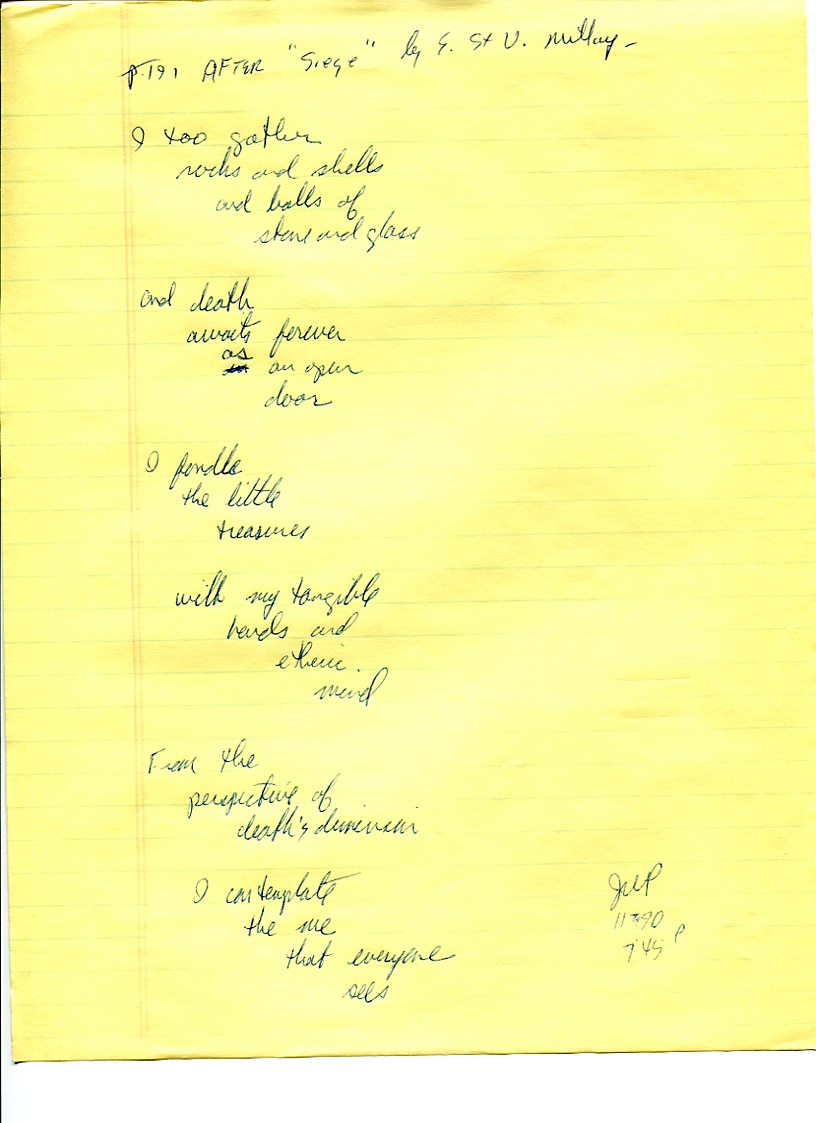 p. 191 AFTER "Siege" by E. St V. Millay -
I too gather
rocks and shells
and balls of
stone and glass
and death
awaits forever
as
an open
door
I fondle
the little
treasures
with my tangible
hands and
etheric
mind
From the
perspective of
death's dimension
I contemplate
the me
that everyone
sees
JMP
7:45 P